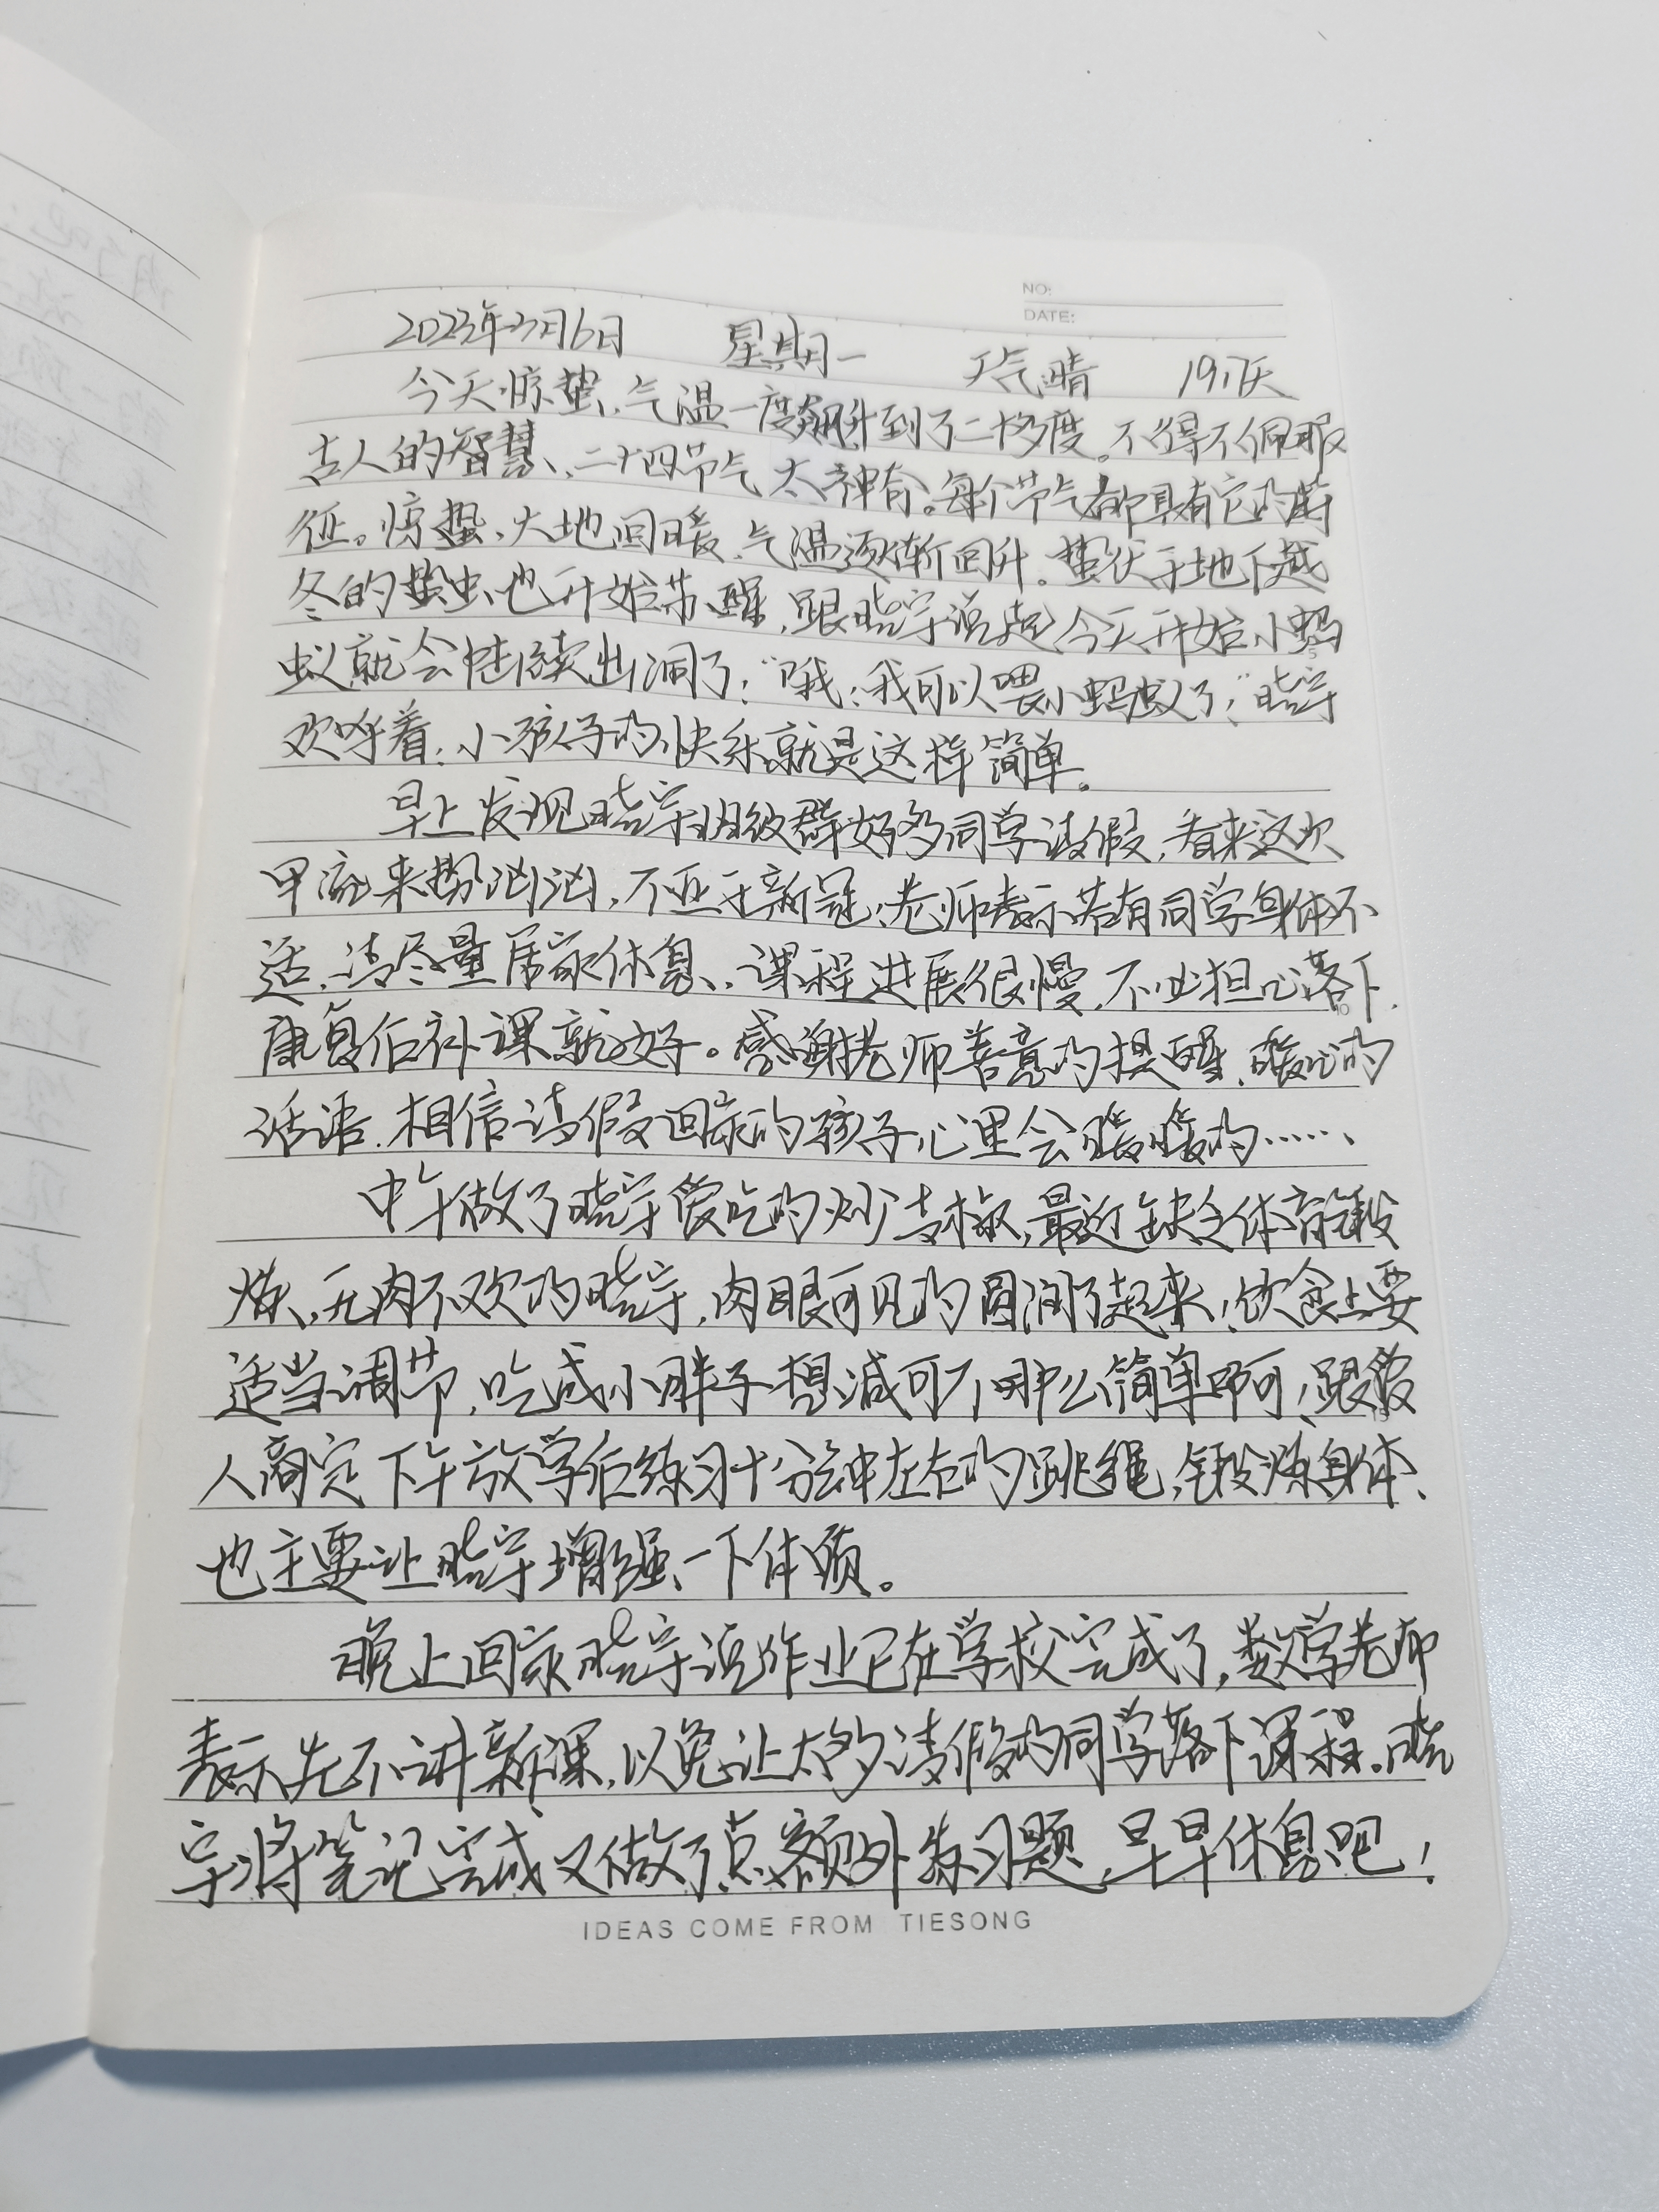 NO:
DATE:
2023年3月6日 星期一 天气晴 197天
今天惊蛰,气温一度飙升到了二十多度。不得不佩服
古人的智慧,二十四节气太神奇。每个节气都具有它的特
征。惊蛰,大地回暖,气温逐渐回升。蛰伏于地下越
冬的蛰虫也开始苏醒,跟晓宇说起今天开始小蚂
蚁就会陆续出洞了,“哦,我可以喂小蚂蚁了,”晓宇
欢呼着,小孩子的快乐就是这样简单。
早上发现晓宇班级群好多同学请假,看来这次
甲流来势汹汹,不亚于新冠,老师表示若有同学身体不
适,请尽量居家休息,课程进展很慢,不必担心落下,
康复后补课就好。感谢老师善意的提醒,暖心的
话语,相信请假回家的孩子心里会暖暖的……
中午做了晓宇爱吃的炒青椒,最近缺乏体育锻
炼,无肉不欢的晓宇,肉眼可见的圆润了起来,饮食上要
适当调节,吃成小胖子想减可不那么简单啊,跟爱
人商定下午放学后练习十分钟左右的跳绳,锻炼身体,
也主要让晓宇增强一下体质。
晚上回家晓宇说作业已在学校完成了,数学老师
表示先不讲新课,以免让太多请假的同学落下课程。晓
宇将笔记完成又做了点额外练习题,早早休息吧!
IDEAS COME FROM TIESONG